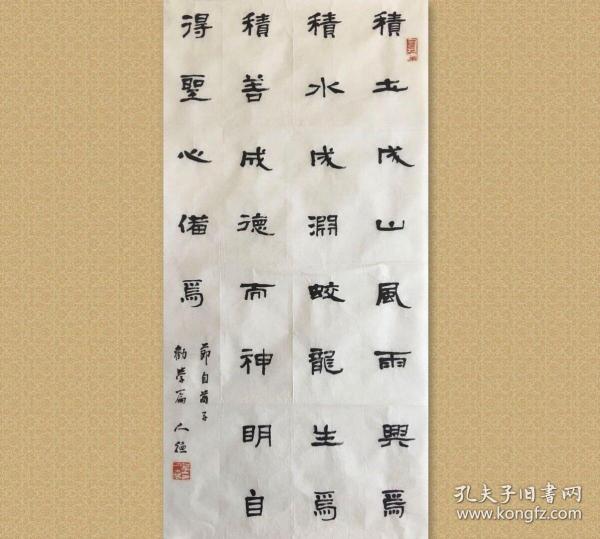 積土成山風雨興焉
積水成淵蛟龍生焉
積善成德而神明自
得聖心備焉
節自荀子
勸學篇
孔夫子旧书网
www.kongfz.com